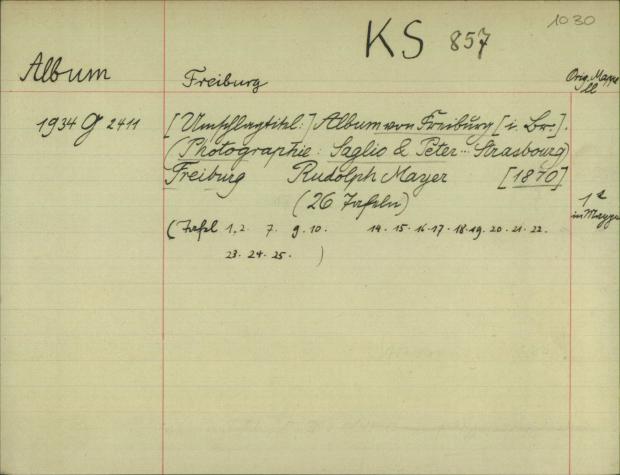 1030
KS 857
Album
Freiburg
Orig. Mappe
ll
1934 G 2411
[Umschlagtitel:] Album von Freiburg [i. Br.].
(Photographie: Saglio & Peter ·· Strasbourg)
Freiburg Rudolph Mayer [1870]
(26 Tafeln)
1 a
in Mappe
(Tafel 1, 2. 7. 9. 10. 14. 15. 16. 17. 18. 19. 20. 21. 22.
23. 24. 25. )